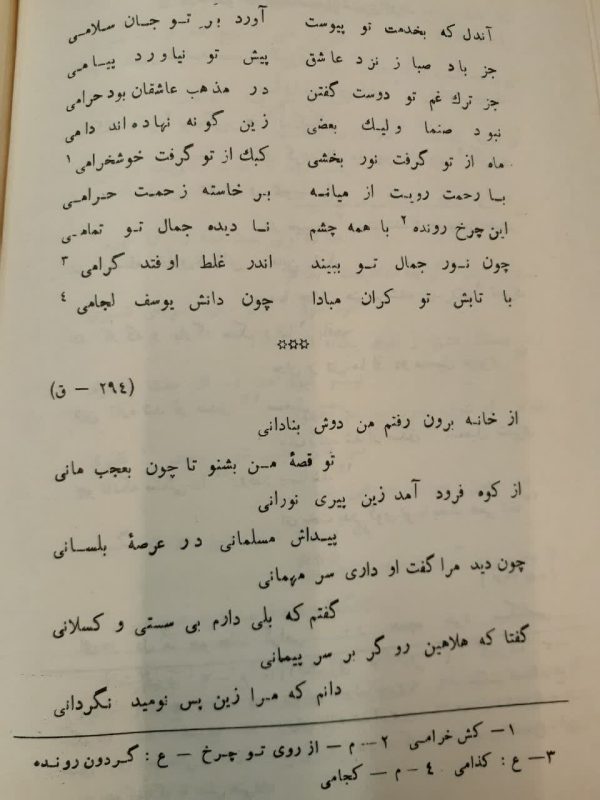 آندل که بخدمت تو پیوست آورد بر تو جان سلامی
جز باد صبا ز نزد عاشق پیش تو نیاورد پیامی
جز ترك غم تو دوست گفتن در مذهب عاشقان بود حرامی
نبود صنما ولیك بعضی زین گونه نهاده‌اند دامی
ماه از تو گرفت نور بخشی کبك از تو گرفت خوشخرامی ۱
با رحمت رویت از میانه بر خاسته زحمت حرامی
این چرخ رونده ۲ با همه چشم نا دیده جمال تو تمامی
چون نور جمال تو ببیند اندر غلط اوفتد گرامی ۳
با تابش تو کران مبادا چون دانش یوسف لجامی ٤
***
(۲۹٤ – ق)
از خانه برون رفتم من دوش بنادانی
تو قصهٔ من بشنو تا چون بعجب مانی
از کوه فرود آمد زین پیری نورانی
پیداش مسلمانی در عرصهٔ بلسانی
چون دید مرا گفت او داری سر مهمانی
گفتم که بلی دارم بی سستی و کسلانی
گفتا که هلاهین رو گر بر سر پیمانی
دانم که مرا زین پس نومید نگردانی
۱– کش خرامی ۲– م – از روی تو چرخ – ع : گردون رونده
۳– ع : کذامی ٤ – م – کجامی